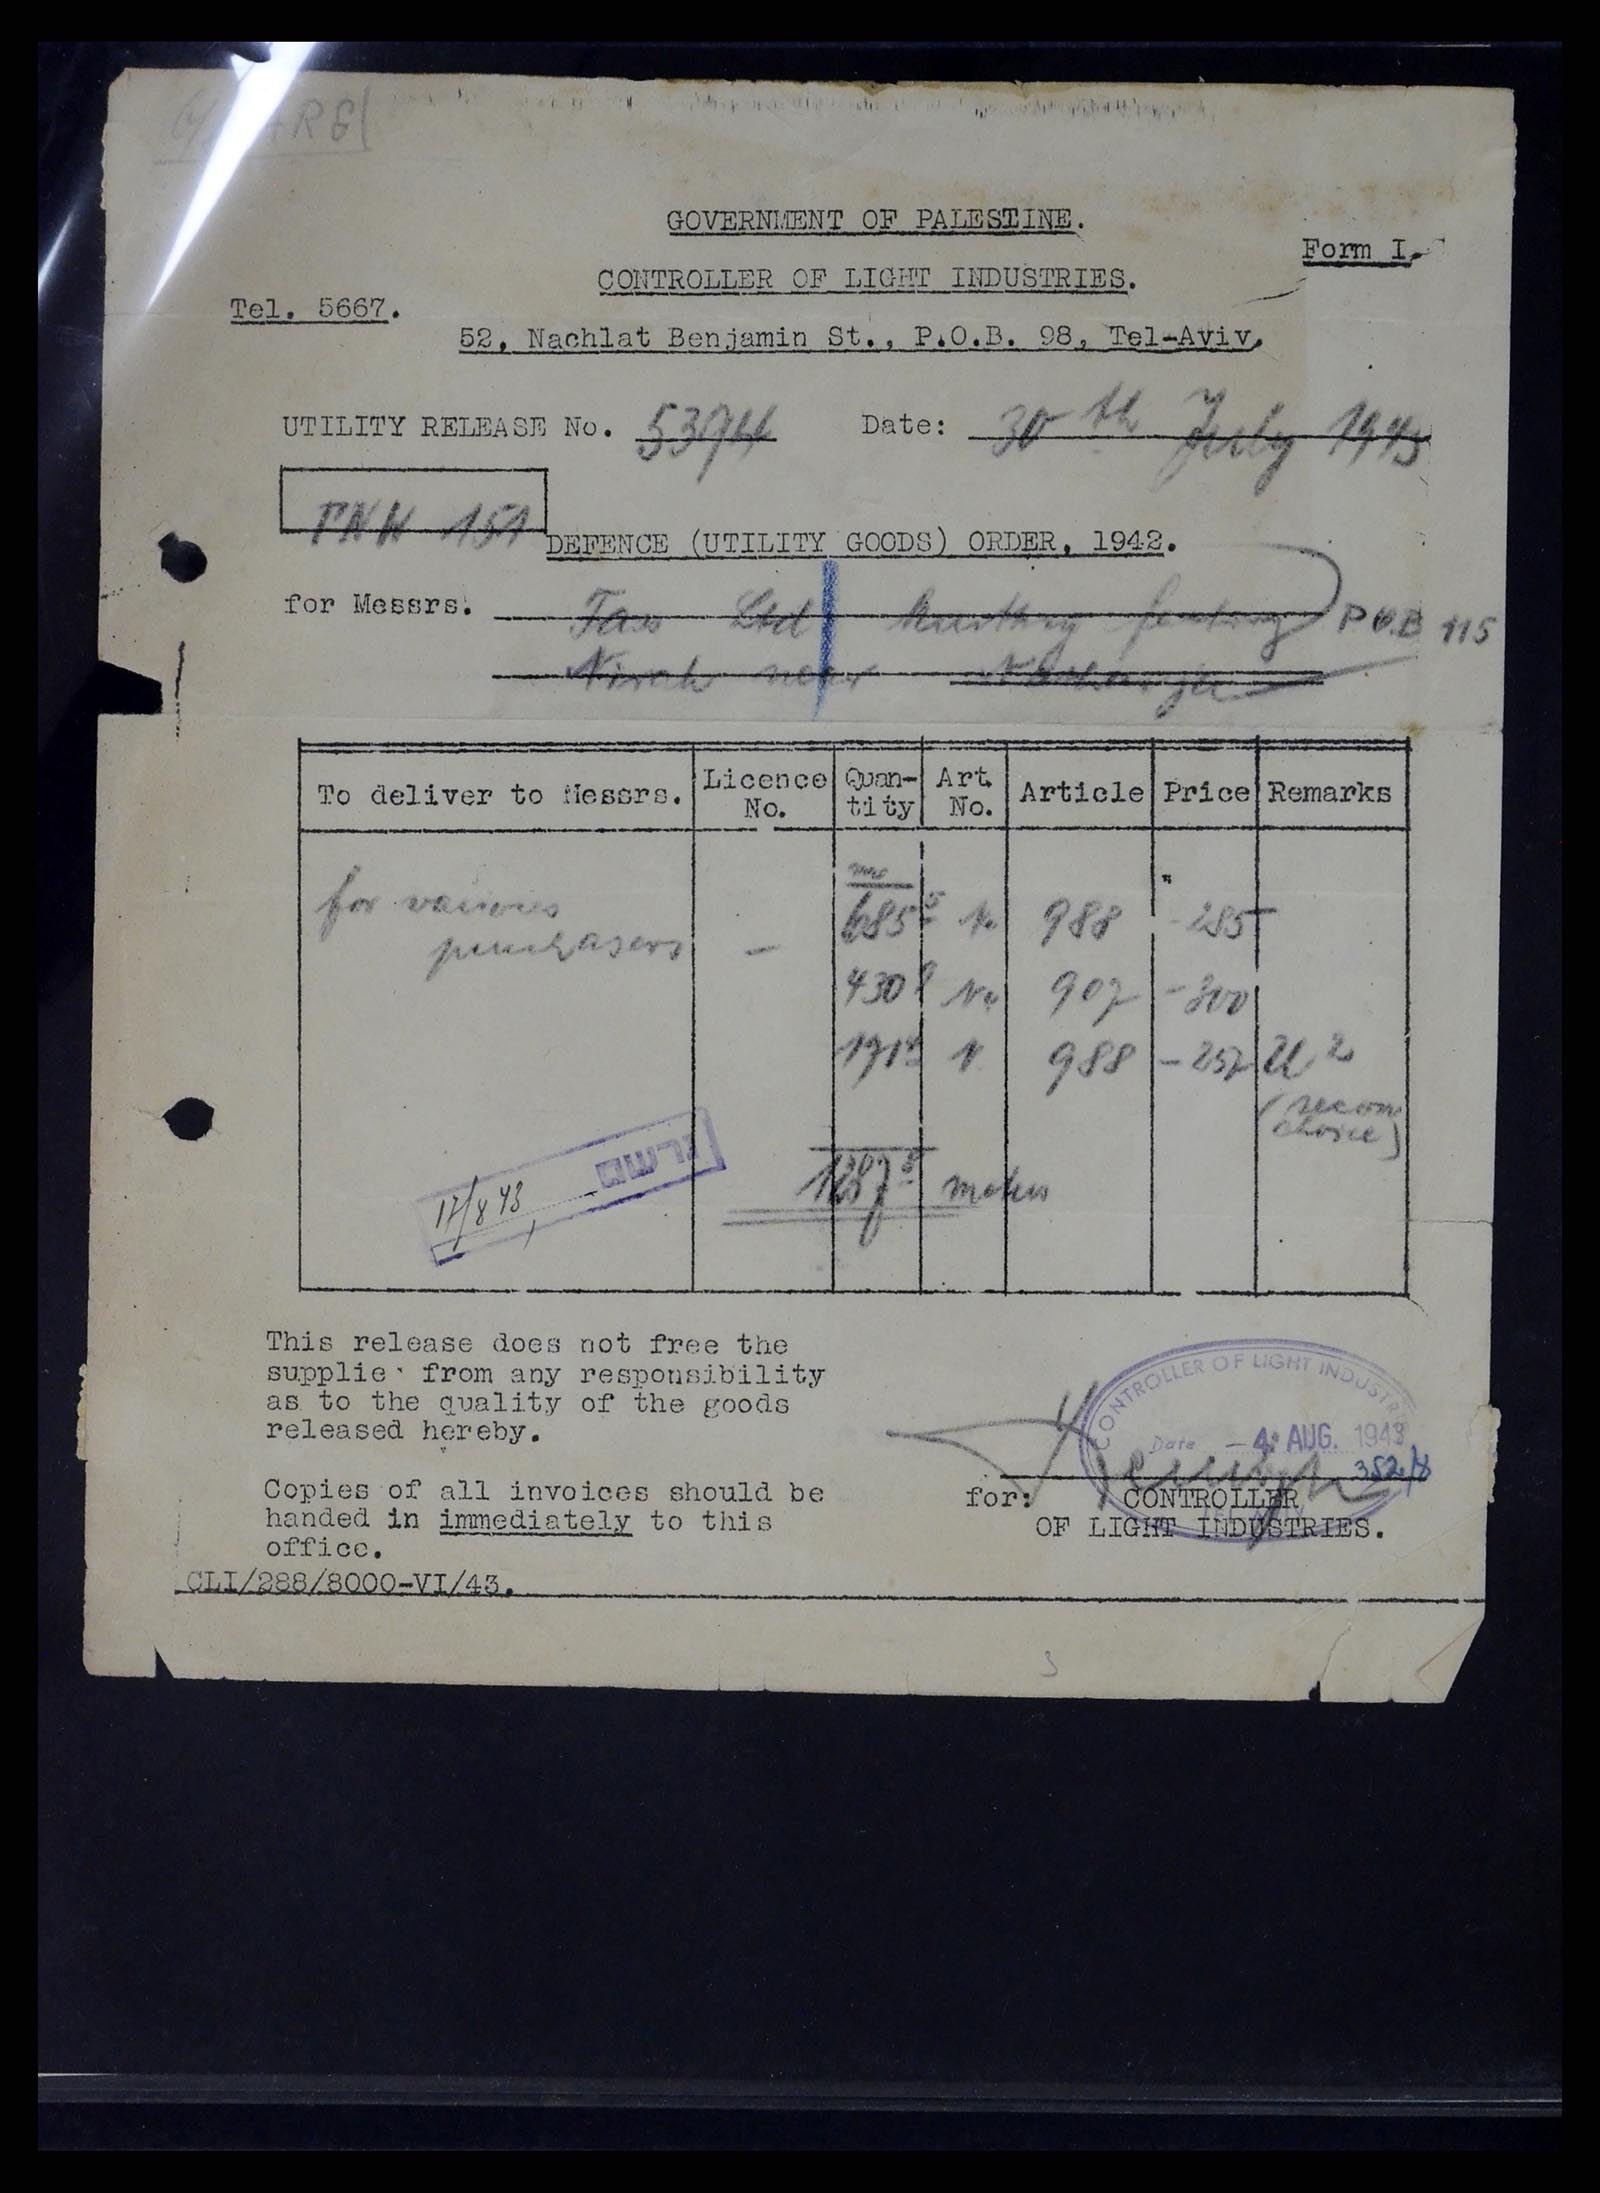 GOVERNMENT OF PALESTINE.
Form I.
CONTROLLER OF LIGHT INDUSTRIES.
Tel. 5667.
52, Nachlat Benjamin St., P.O.B. 98, Tel-Aviv.
UTILITY RELEASE No. 5394 Date: 30th July 1943
PNH 151
DEFENCE (UTILITY GOODS) ORDER, 1942.
for Messrs. Ltd P.O.B 115
near
To deliver to Messrs. Licence No. Quan-tity Art. No. Article Price Remarks
for various 685 No 988 -285
purchasers - 430 No 907 -300
171 N 988 -257 U2
(secon
choice)
1287 meters
17/8 43
This release does not free the
supplie from any responsibility
as to the quality of the goods
released hereby.
CONTROLLER OF LIGHT INDUSTR
Date - 4. AUG. 1943
352/8
Copies of all invoices should be
handed in immediately to this
office.
for: CONTROLLER
OF LIGHT INDUSTRIES.
CLI/288/8000-VI/43.